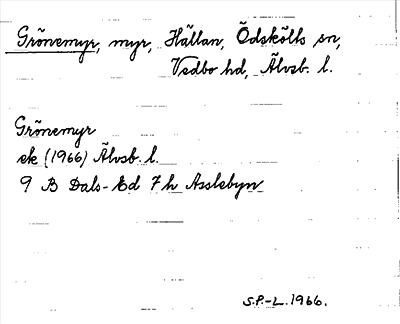 Grönemyr, myr, Hällan, Ödskölts sn,
Vedbo hd, Älvsb. l.
Grönemyr
ek (1966) Älvsb. l.
9 B Dals-Ed 7 h Asslebyn
S.P.-L. 1966.